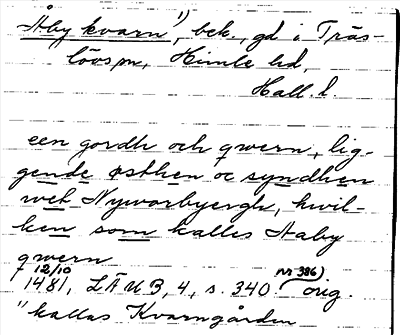 Åby kvarn 1), bek., gd i Träs-
lövs sn, Himle hd,
Hall. l.
een gordh och qwern, lig-
gende østhen oc syndhen
wet Nyworbyergh, hwil-
ken som kalles Aaby
qwern
12/10 1481, LÄUB, 4, s. 340 (nr 386) orig.
1) kallas Kvarngården